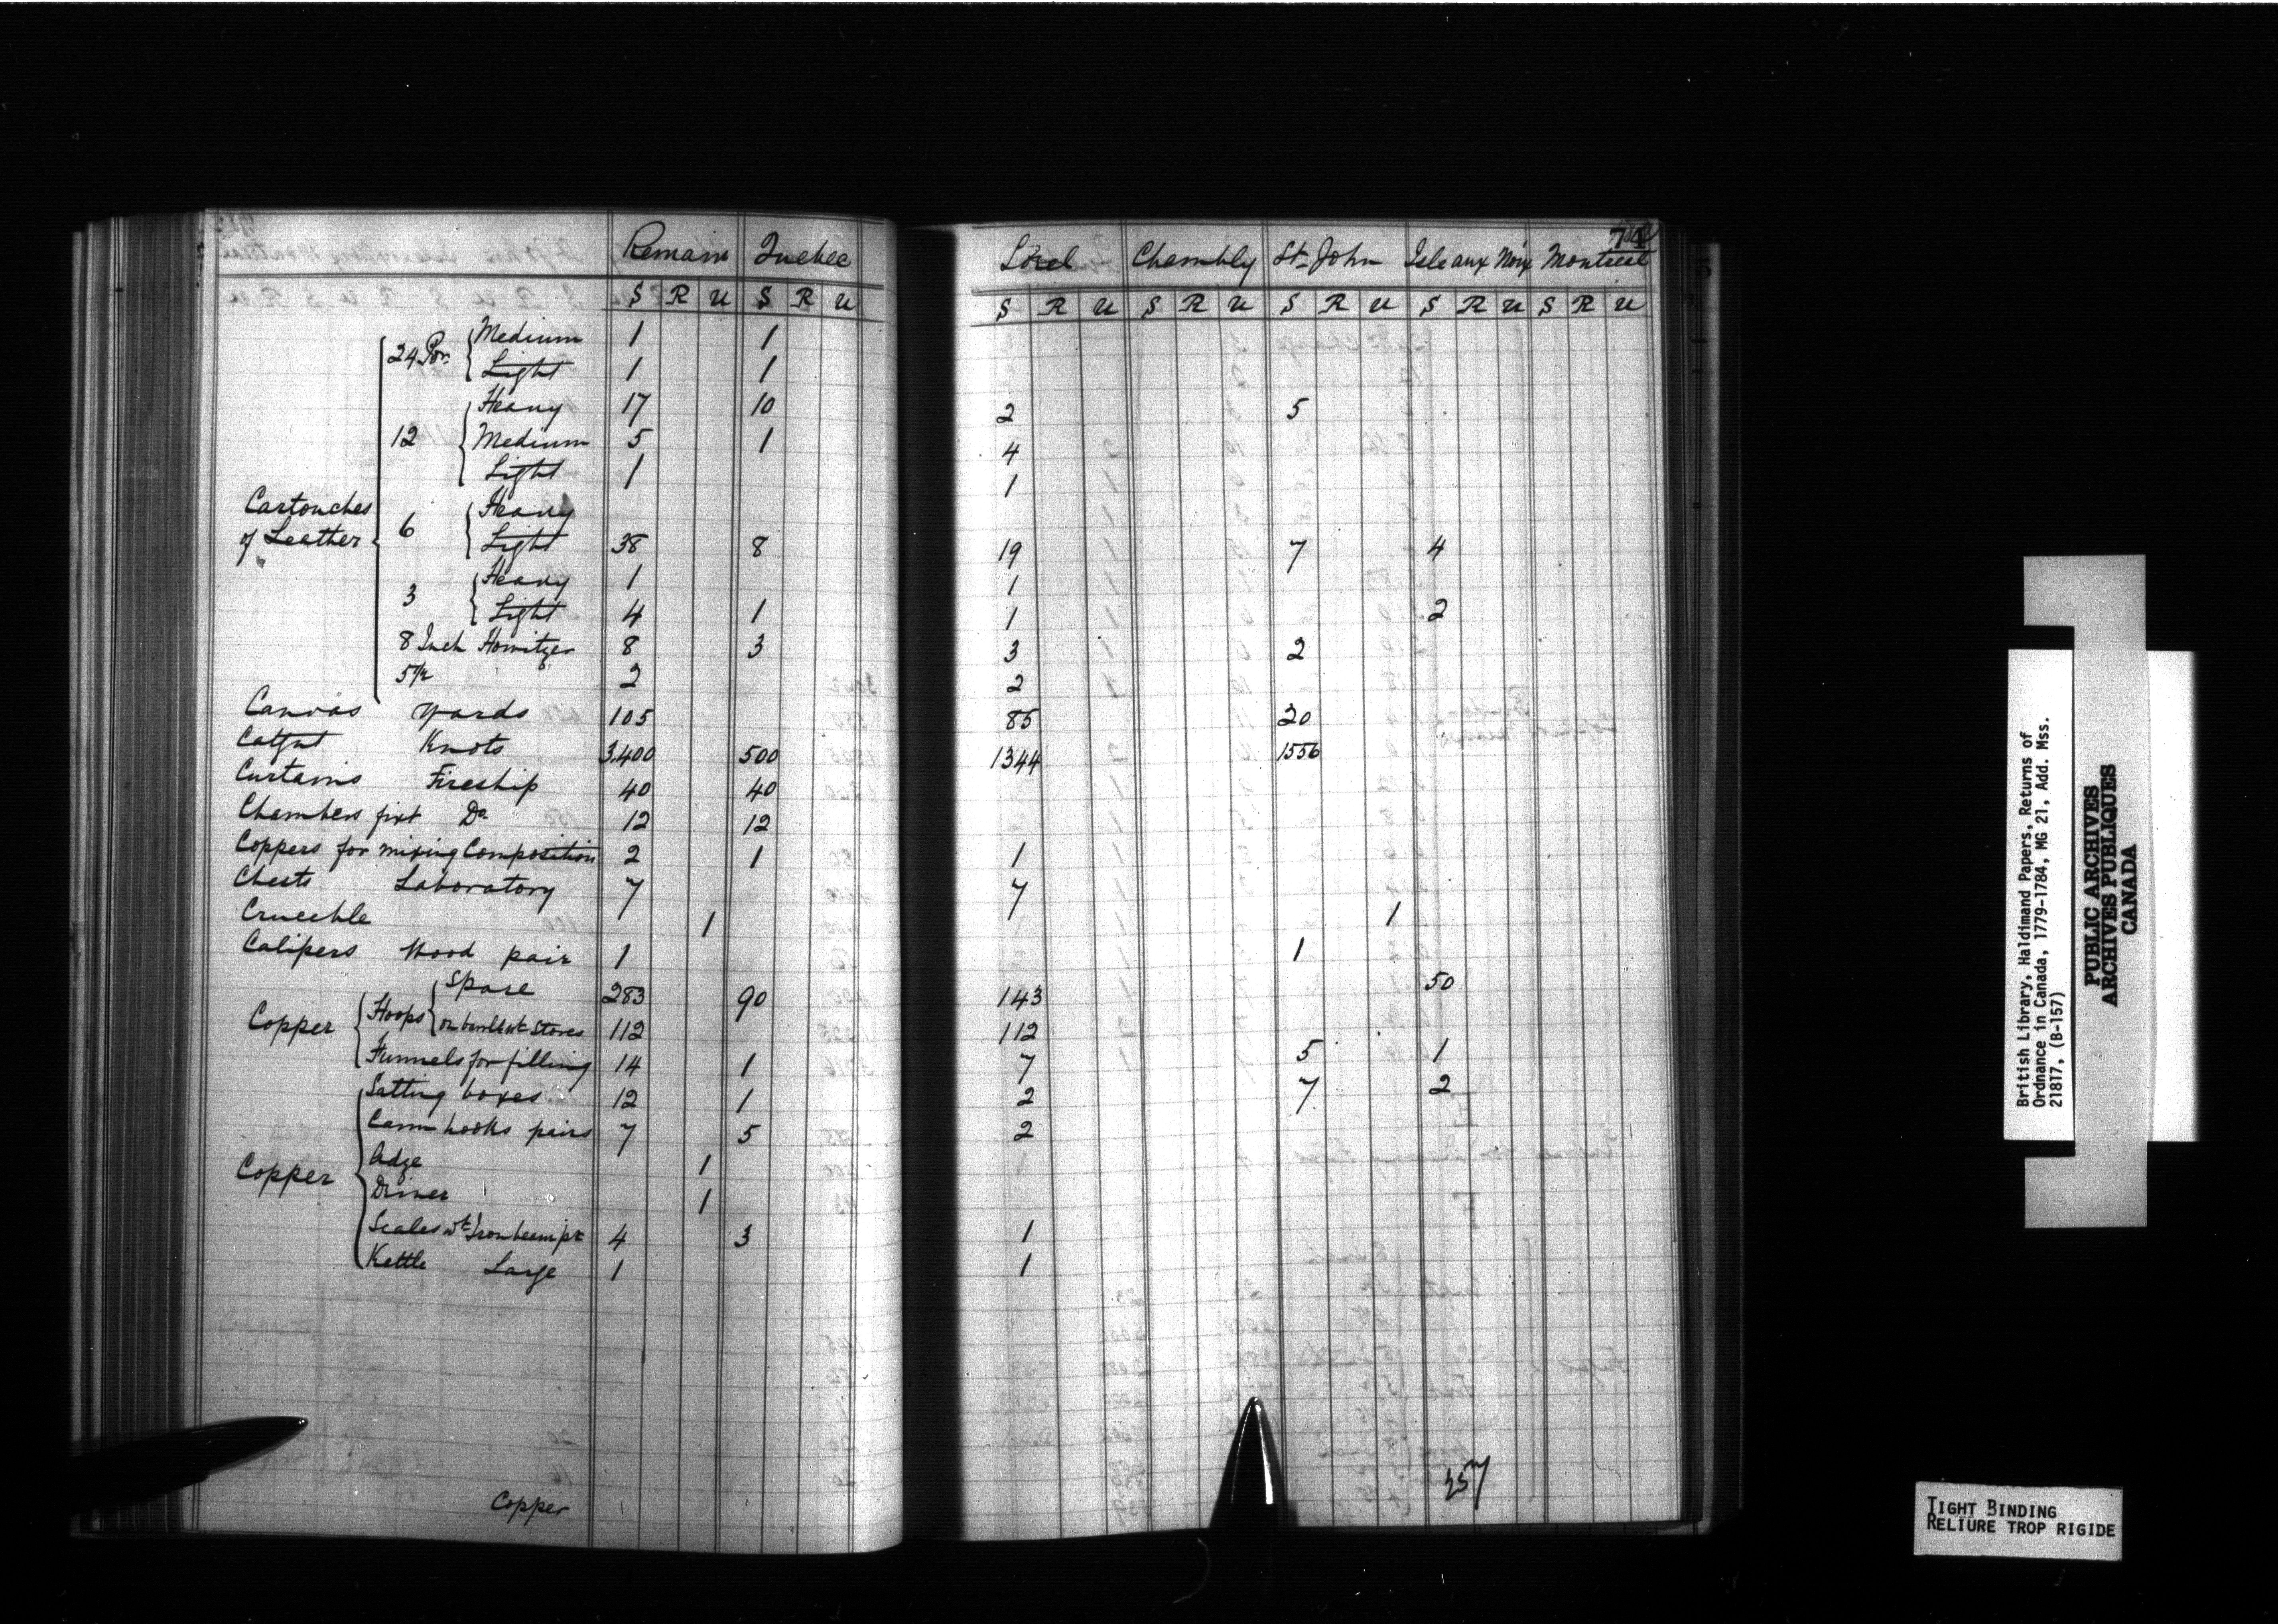 74
Remain Quebec Sorel Chambly St. John Isle aux Noix Montreal
S R U S R U S R U S R U S R U S R U S R U
24 Por. Medium 1 1
Light 1 1
Heavy 17 10 2 5
12 Medium 5 1 4
Light 1 1
Cartouches of Leather
6 Heavy
Light 38 8 19 7 4
3 Heavy 1 1
Light 4 1 1 2
8 Inch Howitzer 8 3 3 2
5½ 2 2
Canvas yards 105 85 20
Catgut Knots 3.400 500 1344 1556
Curtains Fireship 40 40
Chambers fixt Do. 12 12
Coppers for mixing Composition 2 1 1
Chests Laboratory 7 7
Crucible 1 1
Calipers Wood pair 1 1
Copper Hoops Spare 283 90 143 50
on barells wt. Stores 112 112
Funnels for filling 14 1 7 5 1
Copper
Salting boxes 12 1 2 7 2
Cann hooks pairs 7 5 2
Adze 1
Driver 1
Scales wt. Iron beem pr. 4 3 1
Kettle Large 1 1
Copper
257
British Library, Haldimand Papers, Returns of
Ordnance in Canada, 1779-1784, MG 21, Add. Mss.
21817, (B-157)
PUBLIC ARCHIVES
ARCHIVES PUBLIQUES
CANADA
TIGHT BINDING
RELIURE TROP RIGIDE